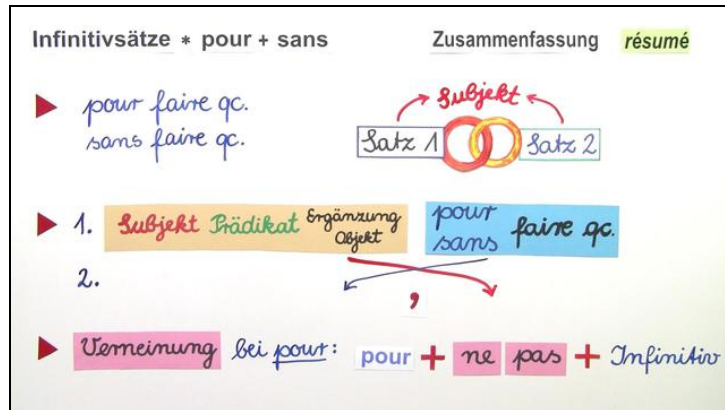 Infinitivsätze * pour + sans
Zusammenfassung résumé
pour faire qc.
sans faire qc.
Subjekt
Satz 1 Satz 2
1. Subjekt Prädikat Ergänzung Objekt pour sans faire qc.
2.
,
Verneinung bei pour: pour + ne pas + Infinitiv